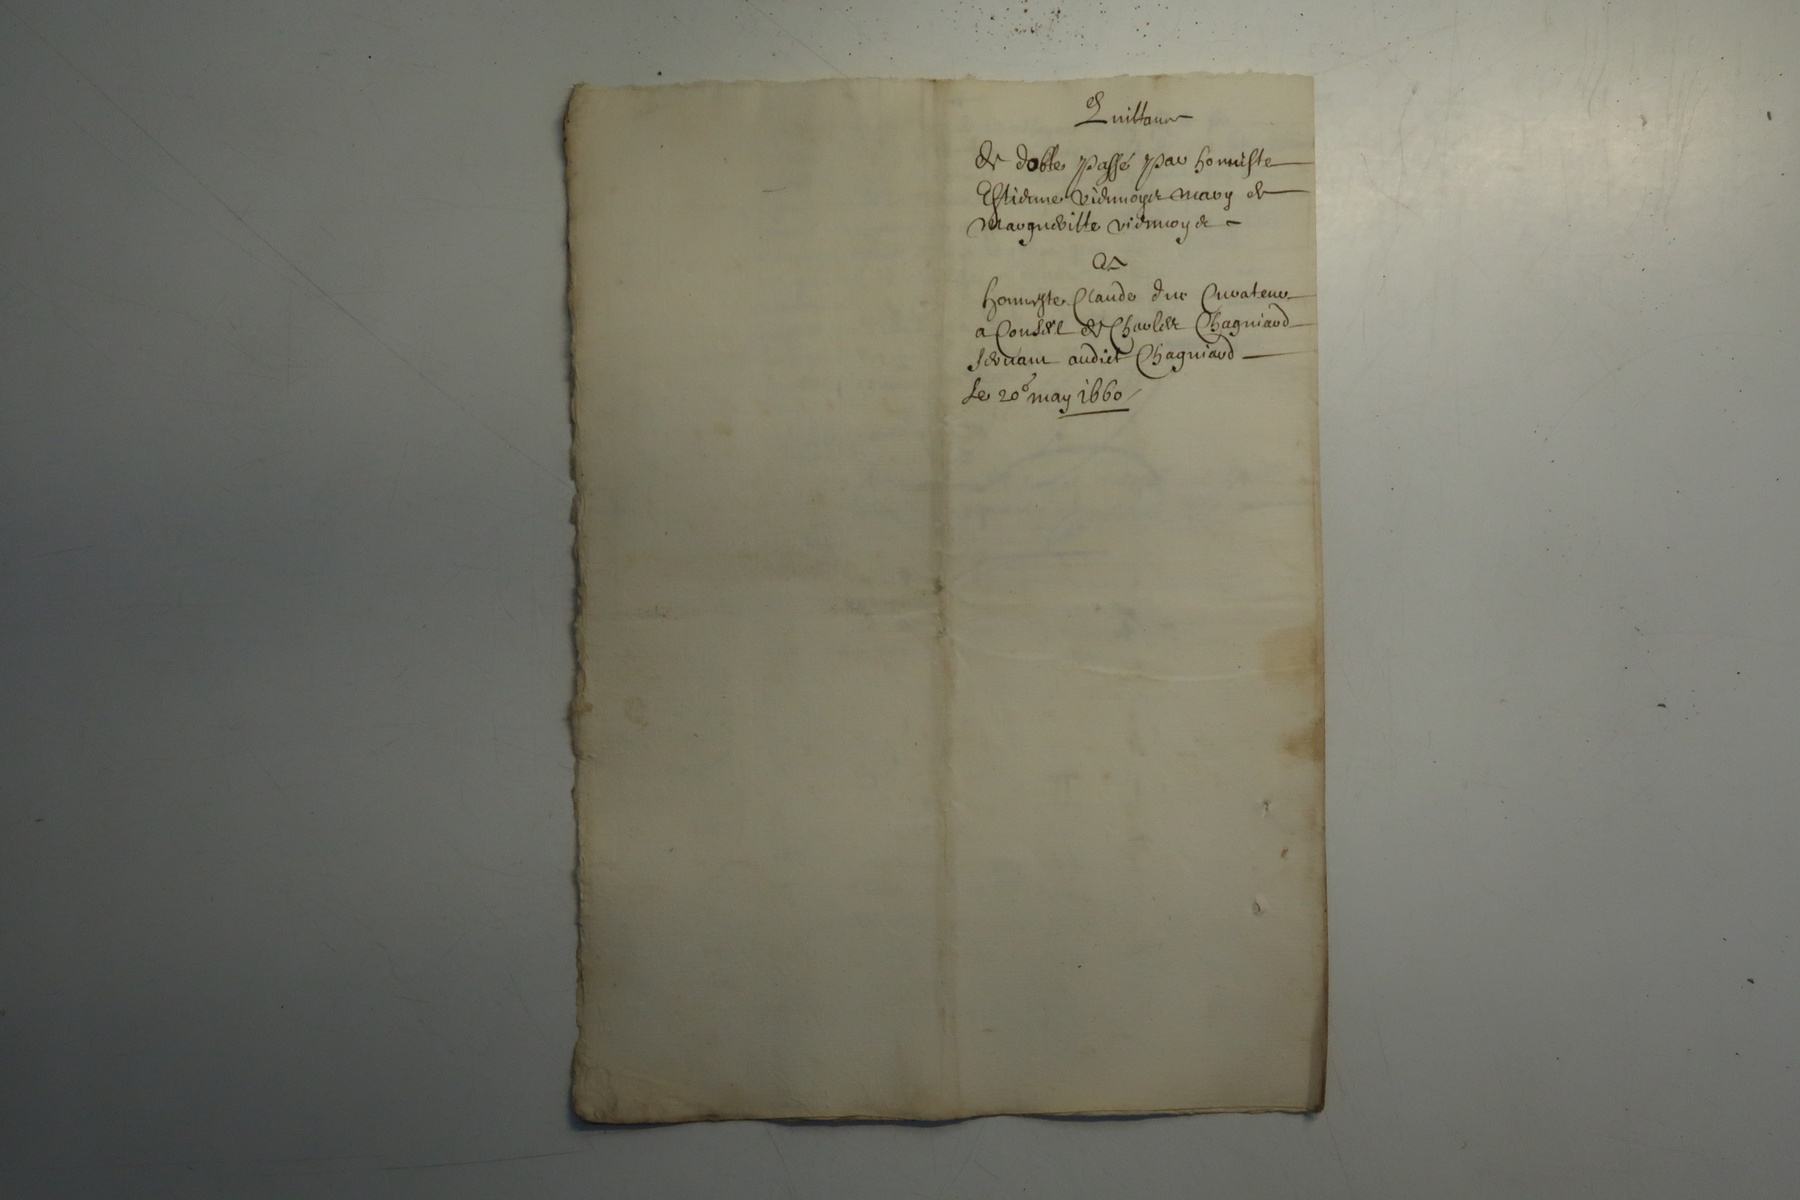 Quittance
de dotte passé par honneste
Estienne vidmoyet mary de
Margueritte vidmoyet
A
honneste Claude duc Curateur
a Conseil de Charles Chagniard
servant audict Chagniard
Le 20e may 1660